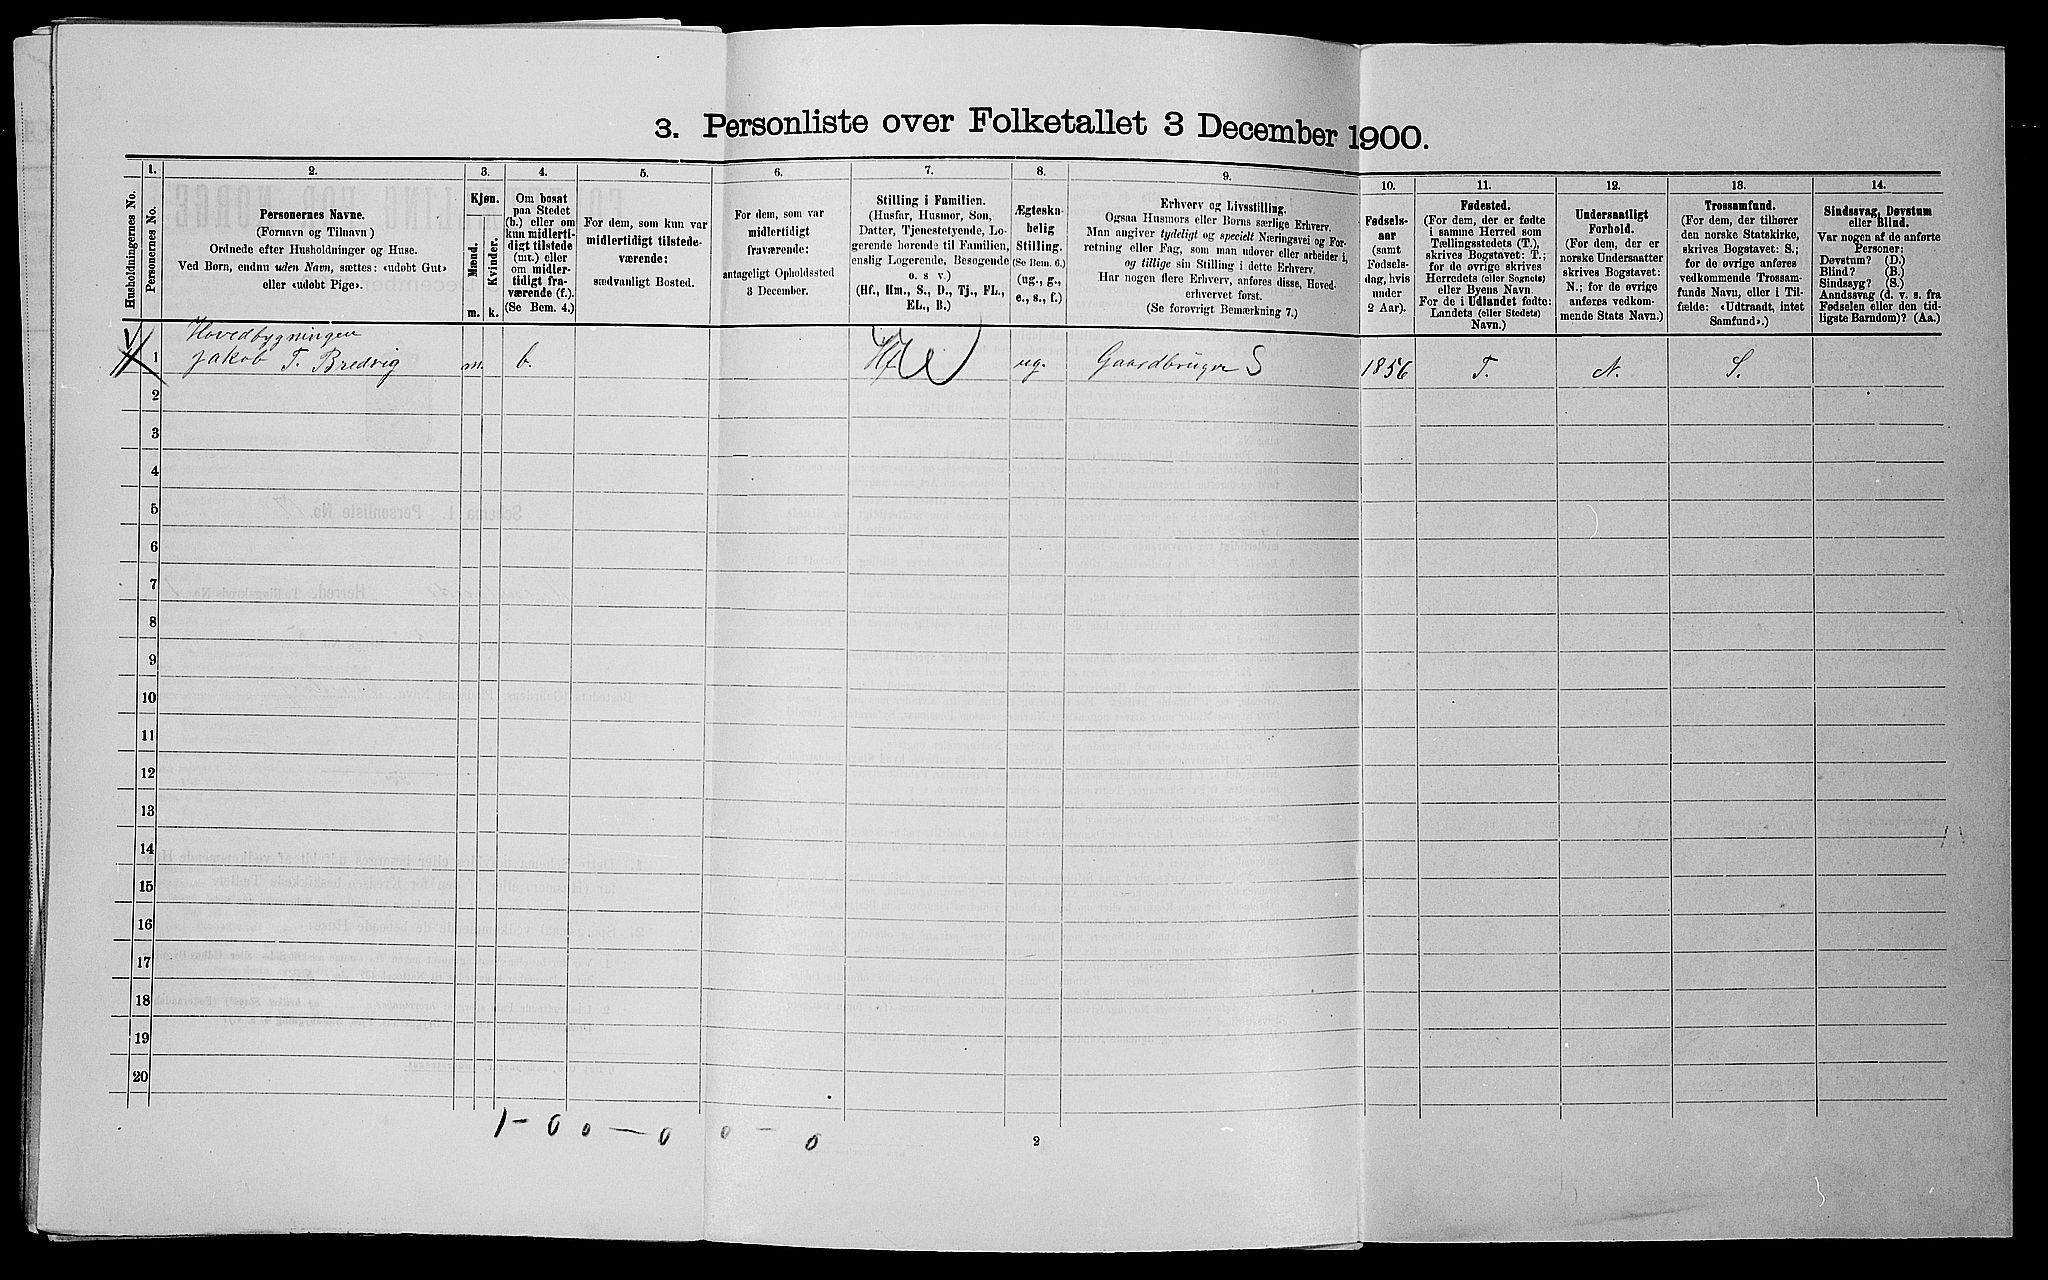 3. Personliste over Folketallet 3 December 1900.
Husholdningernes No.
1.
Personernes No.
2.
Personernes Navne.
(Fornavn og Tilnavn)
Ordnede efter Husholdninger og Huse.
Ved Børn, endnu uden Navn, sættes: «udøbt Gut»
eller «udøbt Pige».
3.
Kjøn.
Mænd.
Kvinder.
m. k.
4.
Om bosat
paa Stedet
(b.) eller om
kun midlerti-
digt tilstede
(mt.) eller
om midler-
tidigt fra-
værende (f.).
(Se Bem. 4.)
5.
For dem, som kun var
midlertidigt tilstede-
værende:
sædvanligt Bosted.
6.
For dem, som var
midlertidigt
fraværende:
antageligt Opholdssted
3 December.
7.
Stilling i Familien.
(Husfar, Husmor, Søn,
Datter, Tjenestetyende, Lo-
gerende hørende til Familien,
enslig Logerende, Besøgende
o. s v.)
(Hf., Hm., S., D., Tj., FL.,
EL., B.)
8.
Ægteska-
belig
Stilling.
(Se Bem. 6.)
(ug., g.,
e., s., f.)
9.
Erhverv og Livsstilling.
Ogsaa Husmors eller Børns særlige Erhverv.
Man angiver tydeligt og specielt Næringsvei og For-
retning eller Fag, som man udøver eller arbeider i,
og tillige sin Stilling i dette Erhverv.
Har nogen flere Erhverv, anføres disse, Hoved-
erhvervet først.
(Se forøvrigt Bemærkning 7.)
10.
Fødsels-
aar
(samt
Fødsels-
dag, hvis
under
2 Aar).
11.
Fødested.
(For dem, der er fødte
i samme Herred som
Tællingsstedets (T.),
skrives Bogstavet: T.;
for de øvrige skrives
Herredets (eller Sognets)
eller Byens Navn.
For de i Udlandet fødte:
Landets (eller Stedets)
Navn.)
12.
Undersaatligt
Forhold.
(For dem, der er
norske Undersaatter
skrives Bogstavet:
N.; for de øvrige
anføres vedkom-
mende Stats Navn.)
13.
Trossamfund.
(For dem, der tilhører
den norske Statskirke,
skrives Bogstavet: S.;
for de øvrige anføres
vedkommende Trossam-
funds Navn, eller i Til-
fælde: «Udtraadt, intet
Samfund».)
14.
Sindssvag, Døvstum
eller Blind.
Var nogen af de anførte
Personer:
Døvstum? (D.)
Blind? (B.)
Sindssyg? (S.)
Aandssvag (d. v. s. fra
Fødselen eller den tid-
ligste Barndom)? (Aa.)
Hovedbygningen
1 Jakob T. Bredvig m. b. Hf. ug. Gaardbruger S 1856 T. N. S.
2
3
4
5
6
7
8
9
10
11
12
13
14
15
16
17
18
19
20
1 - 0 0 - 0 0 - 0
2